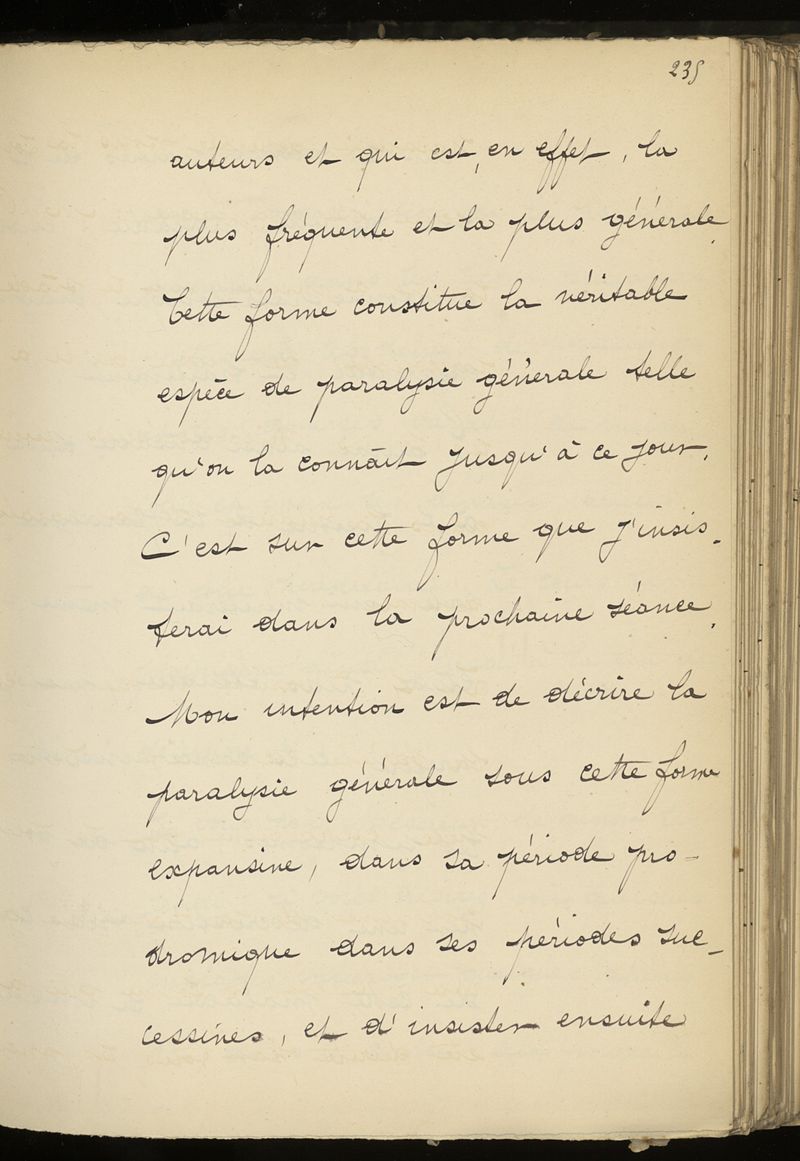 235
auteurs et qui est, en effet, la
plus fréquente et la plus générale.
Cette forme constitue la véritable
espèce de paralysie générale telle
qu'on la connait jusqu'à ce jour.
C'est sur cette forme que j'insis-
terai dans la prochaine séance.
Mon intention est de décrire la
paralysie générale sous cette forme
expansive, dans sa période pro-
dromique dans ses périodes suc-
cessives, et d'insister ensuite